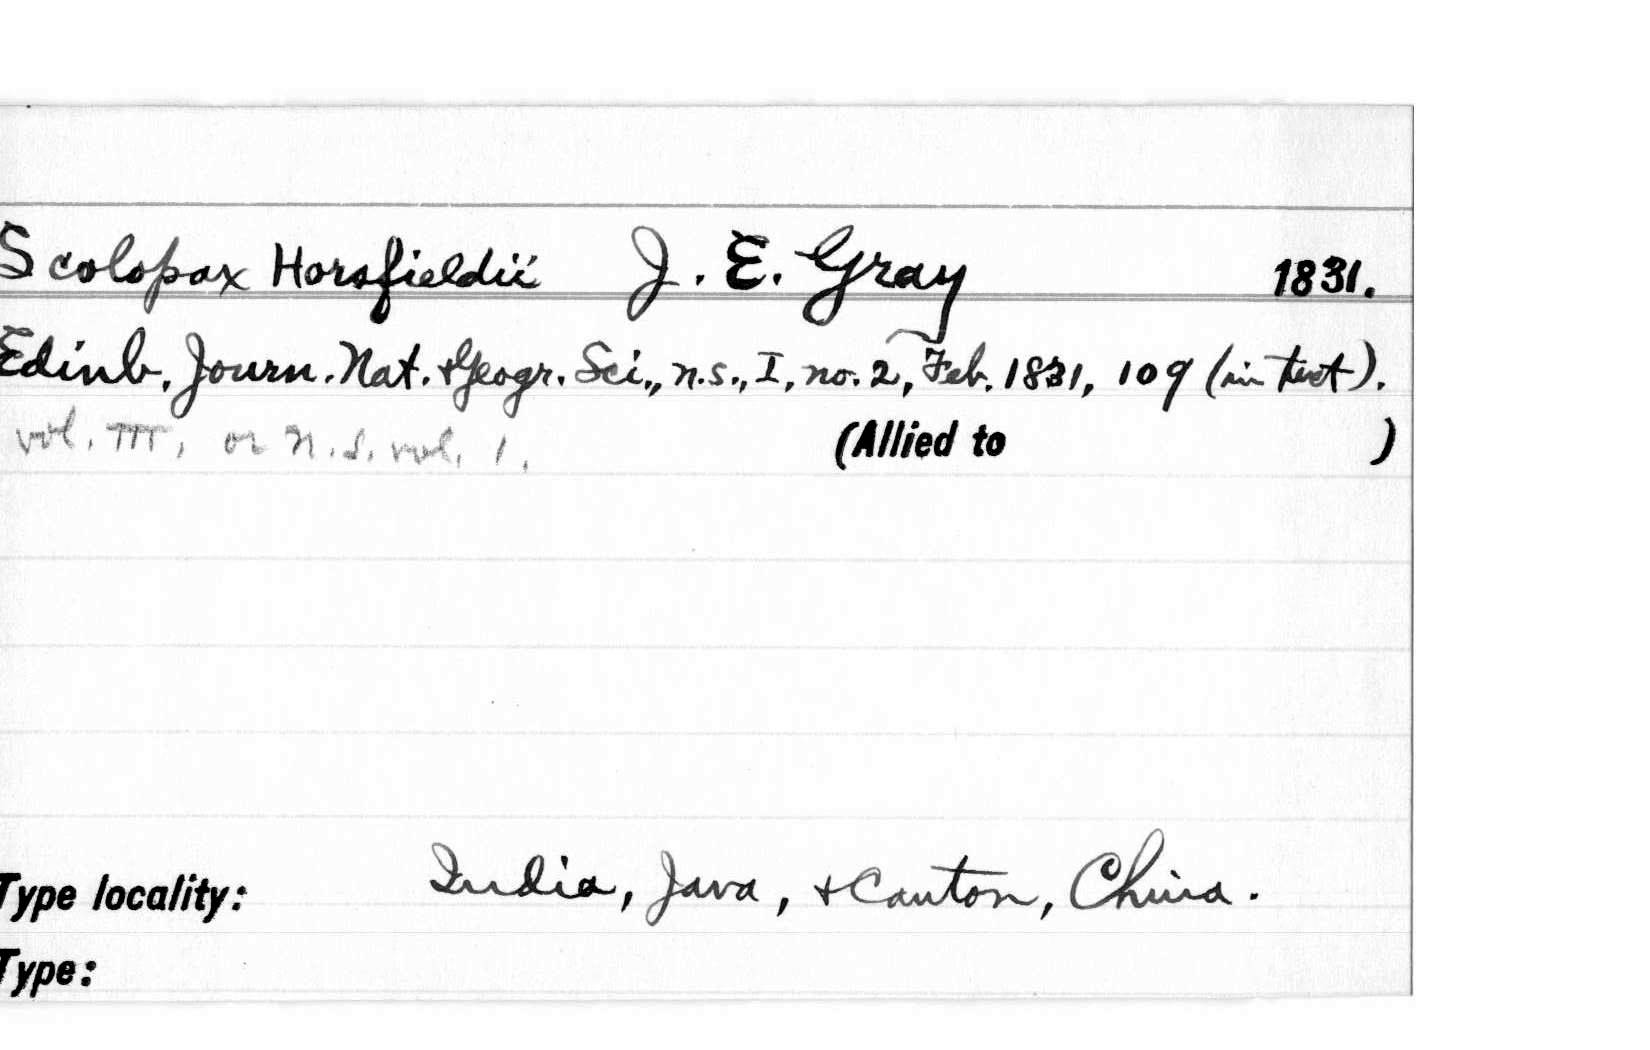 Scolopax Horsfieldii J. E. Gray 1831.
Edinb. Journ. Nat. & Geogr. Sci., n.s., I, no. 2, Feb. 1831, 109 (in text).
vol. III, or n.s. vol. 1.
(Allied to )
Type locality: India, Java, & Canton, China.
Type: